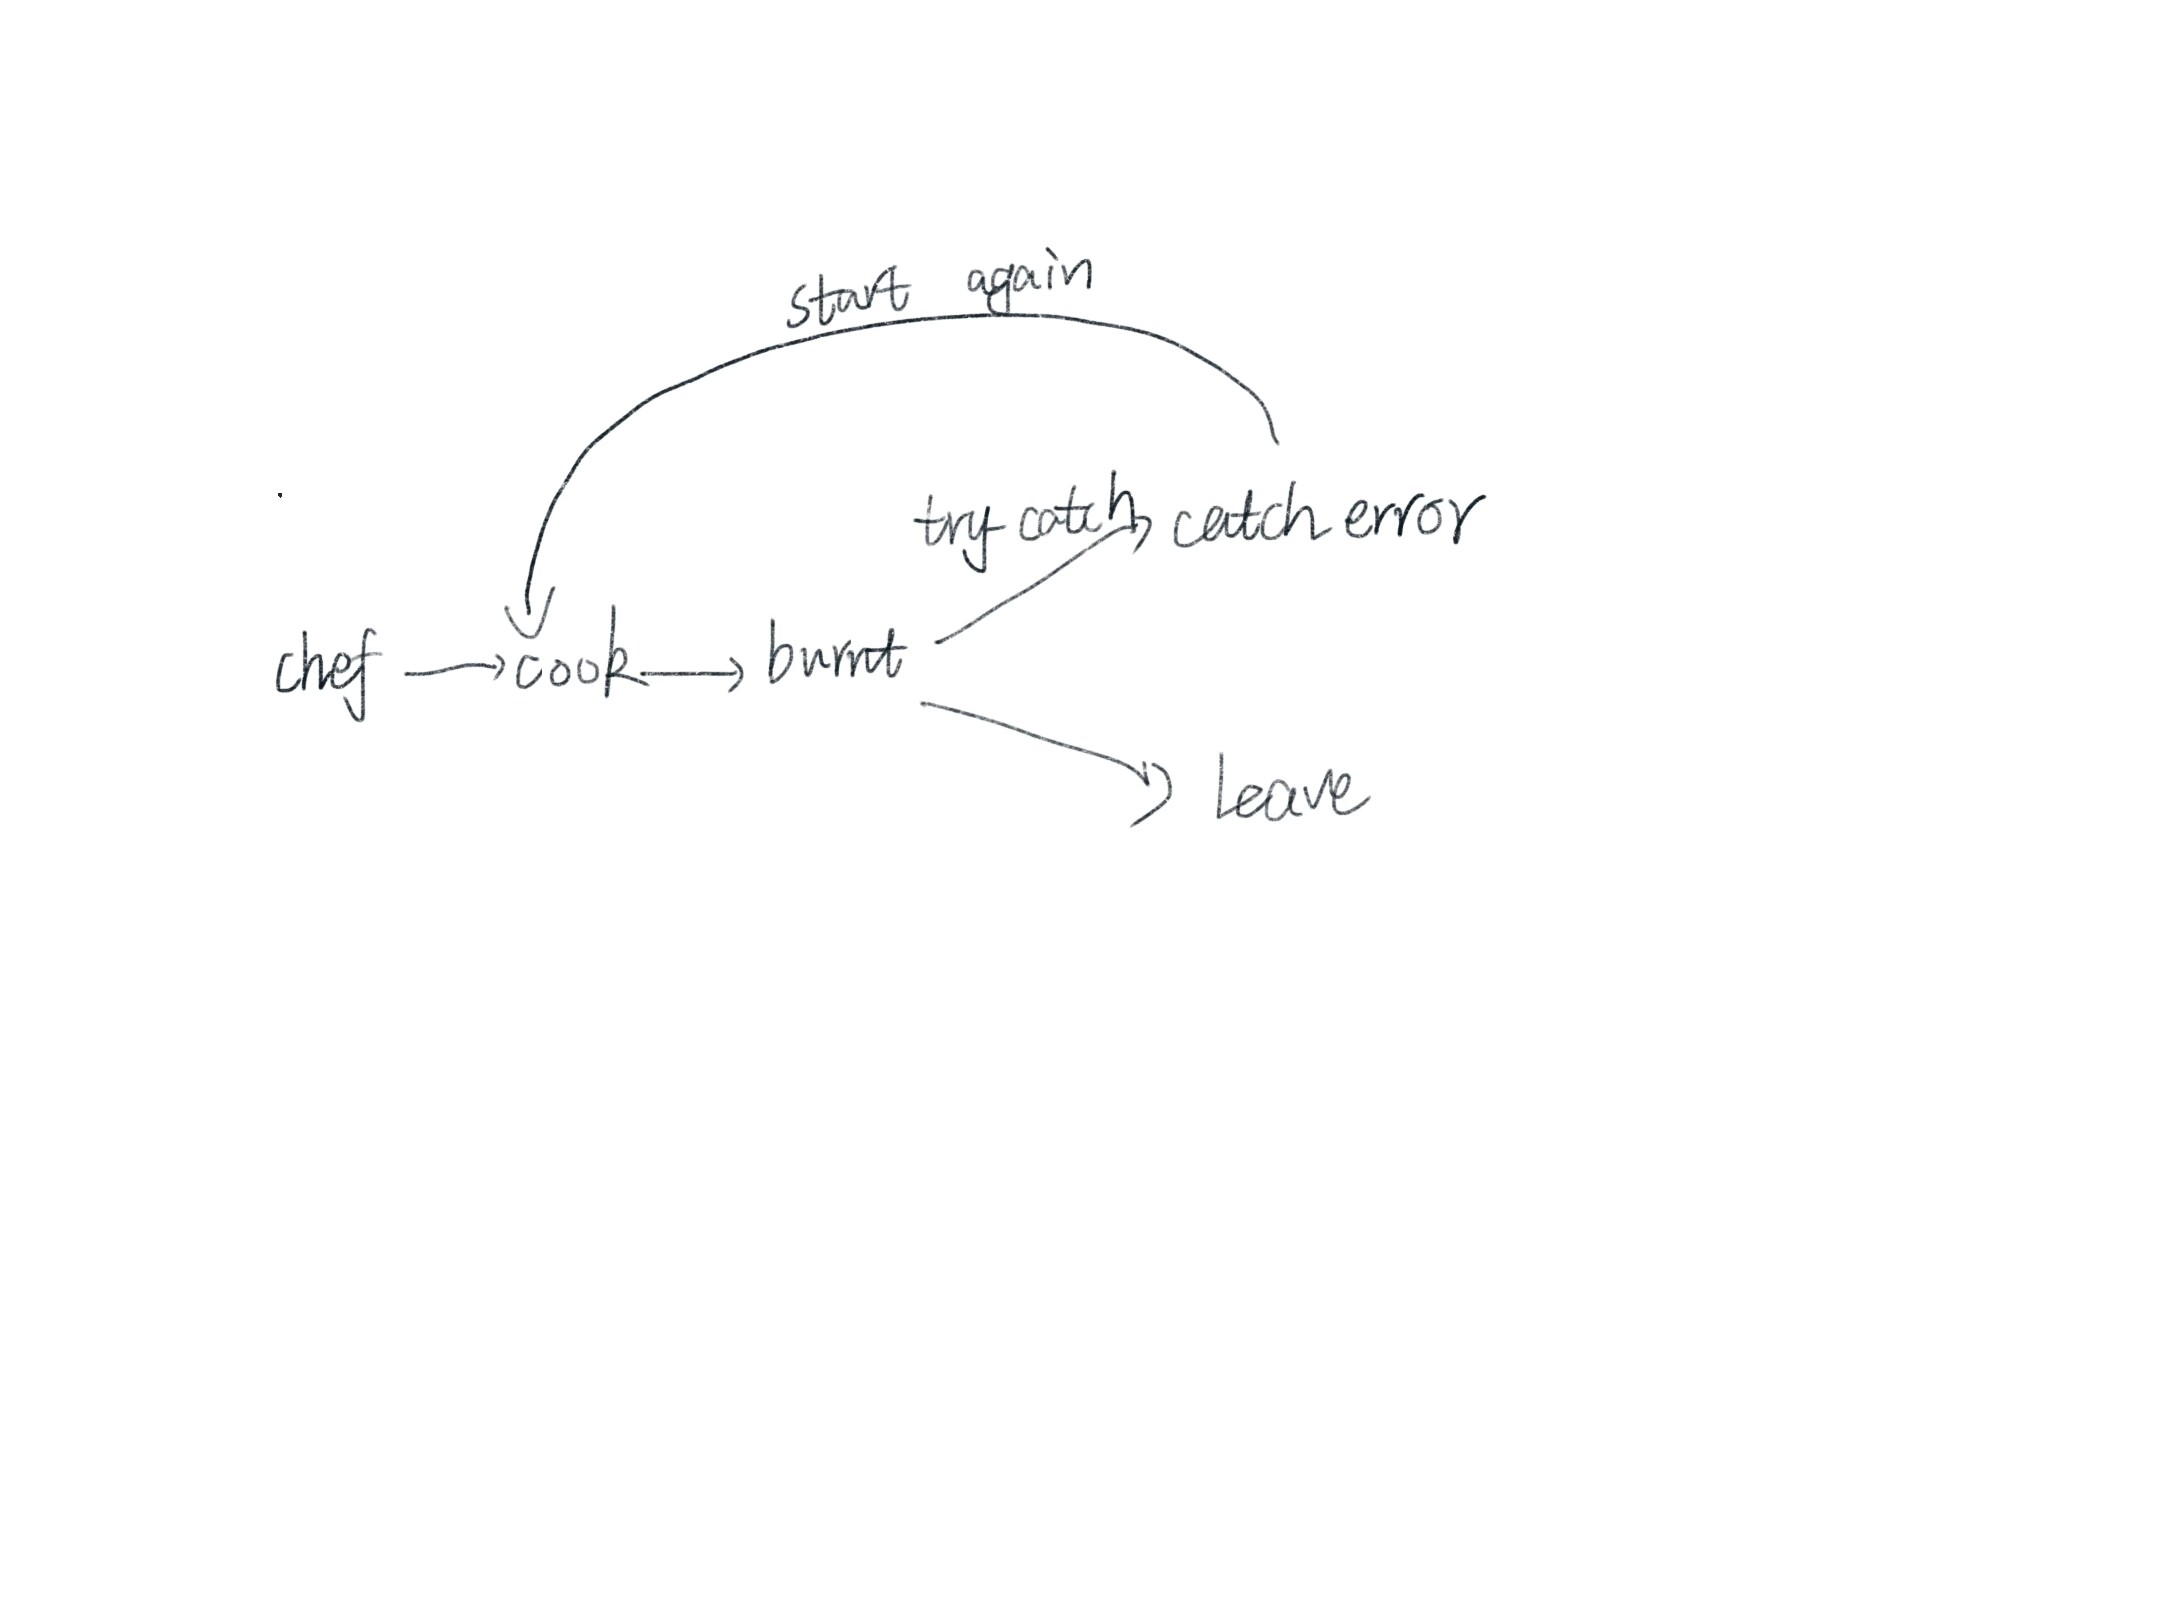 start again
try catch catch error
chef cook burnt
Leave